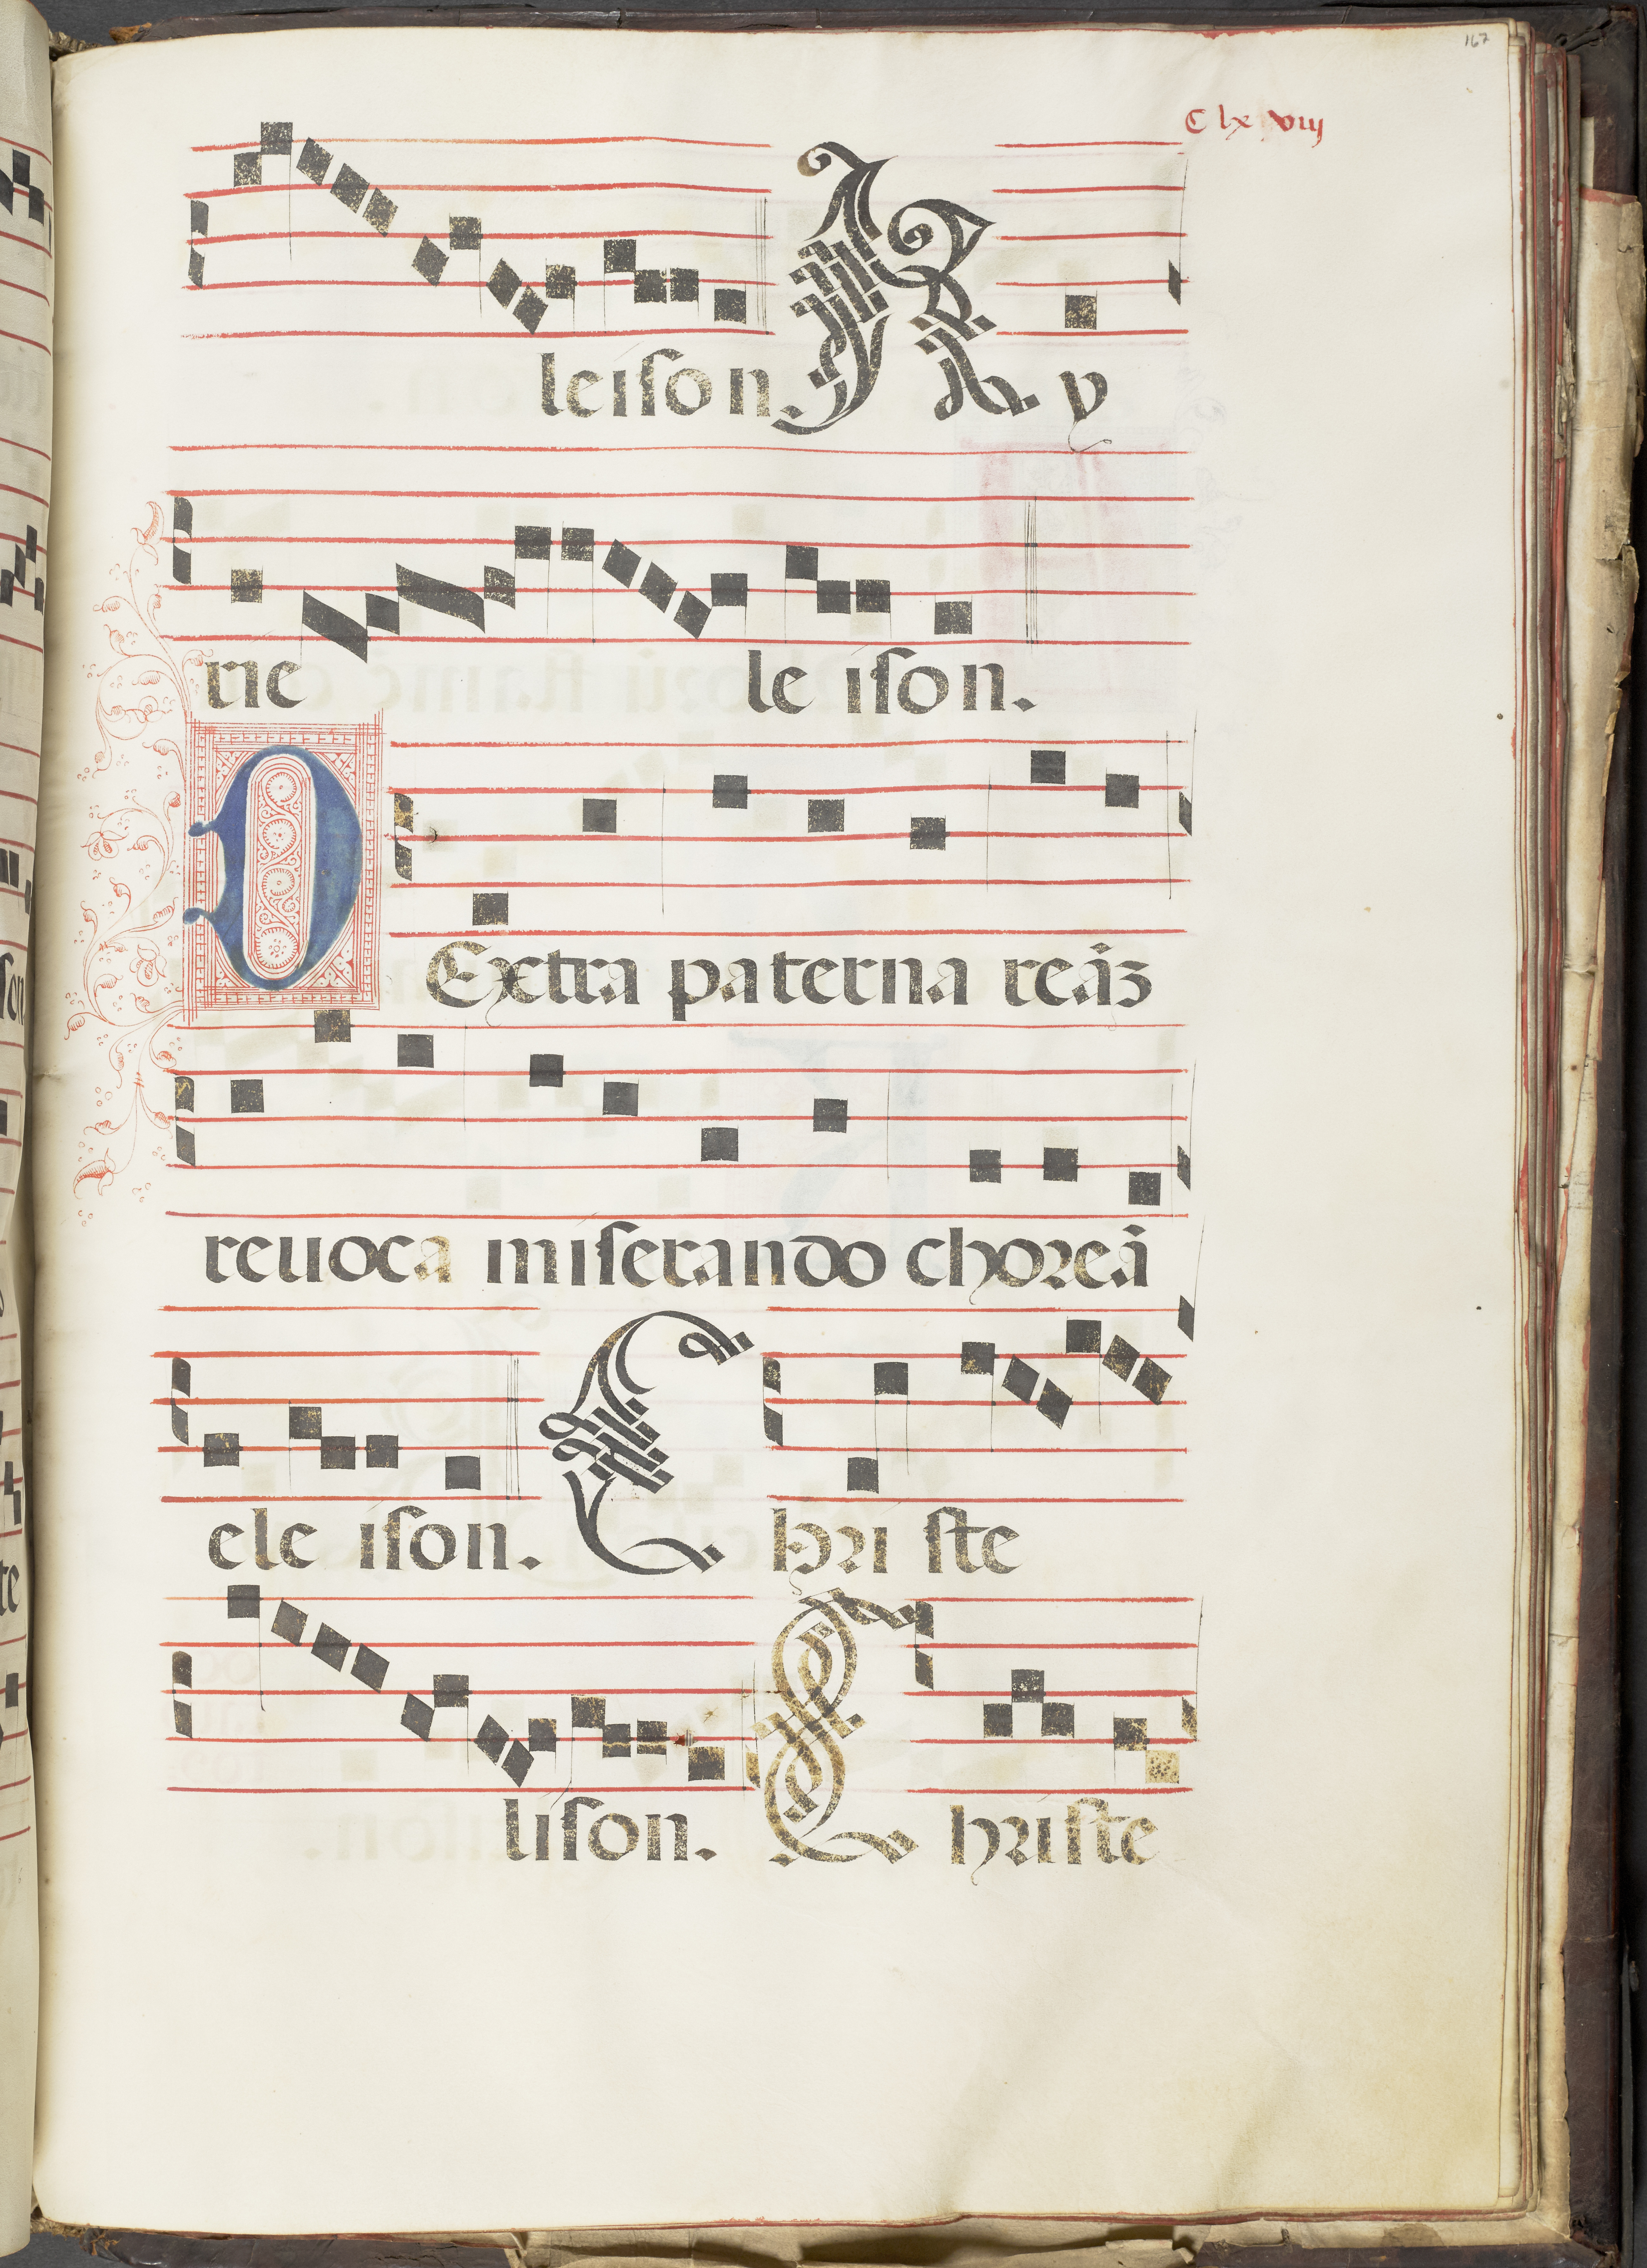 167
C lx viij
leison. K y
rie le ison.
D Extra paterna reãz
reuoca miserando choreã
ele ison. C hri ste
lison. C hriste